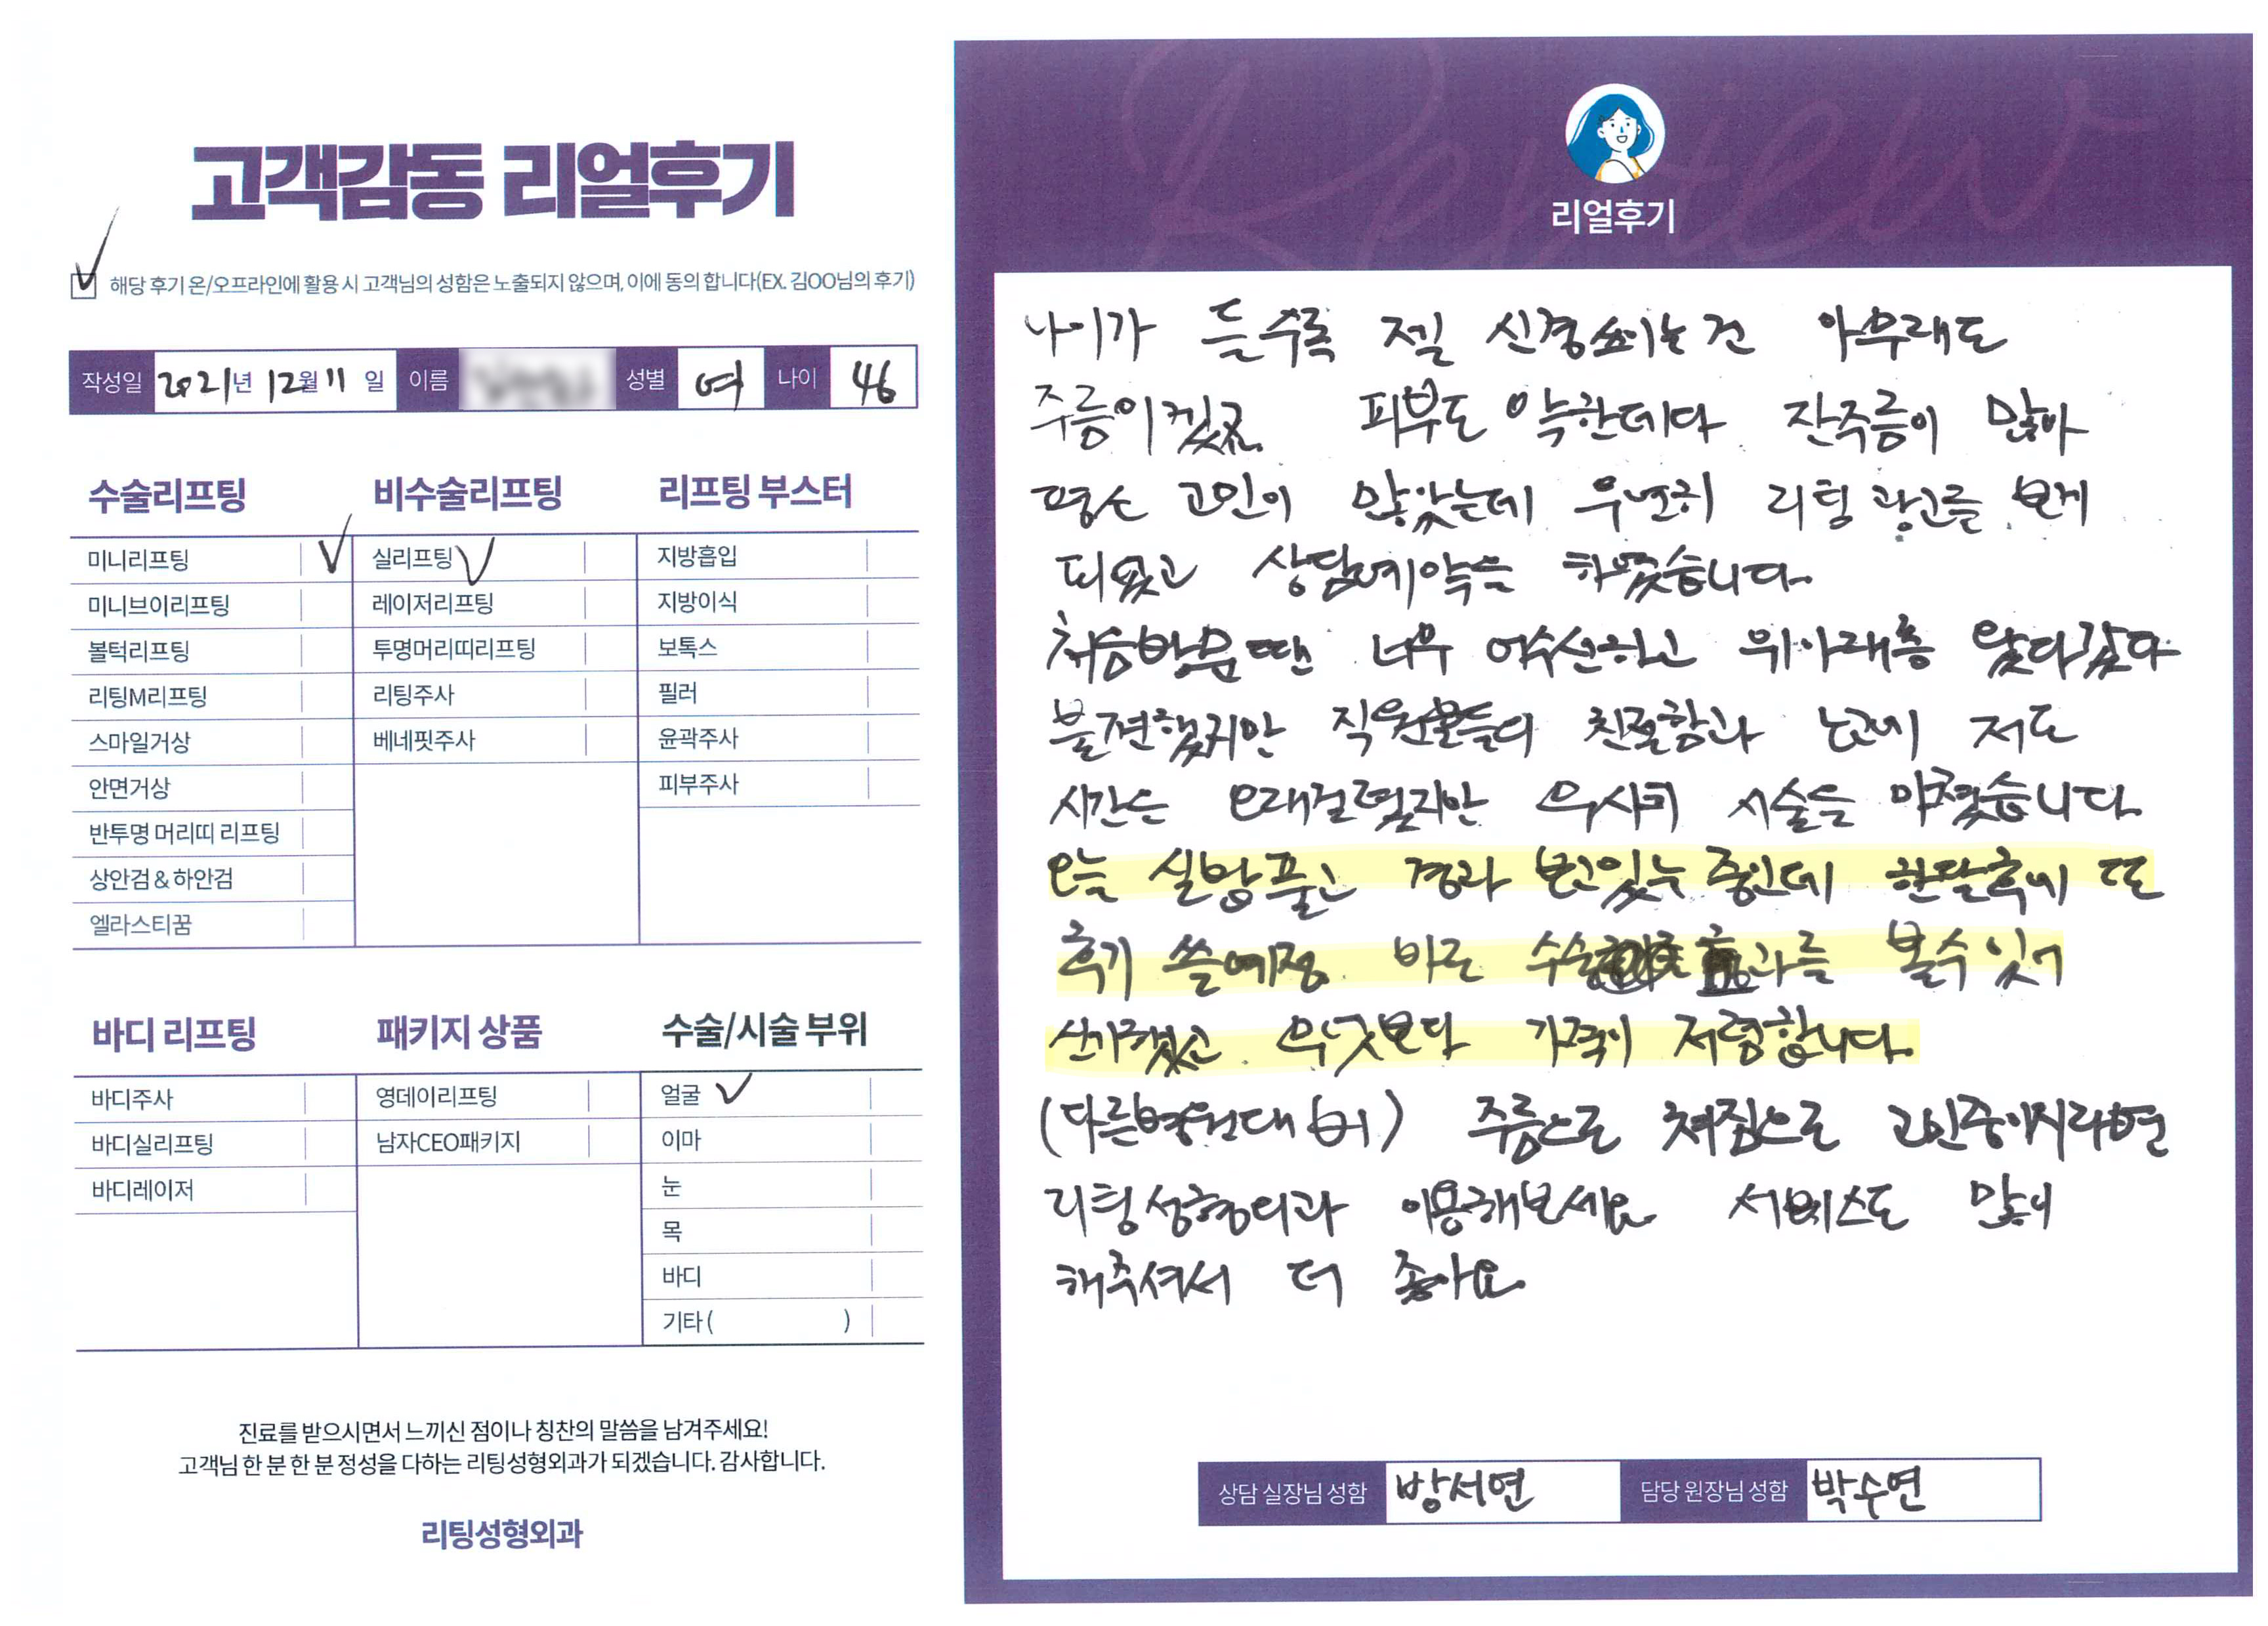 고객감동 리얼후기
해당 후기 온/오프라인에 활용 시 고객님의 성함은 노출되지 않으며, 이에 동의 합니다(EX. 김OO님의 후기)
작성일 2021년 12월 11일 이름 성별 여 나이 46
수술리프팅
미니리프팅
미니브이리프팅
볼턱리프팅
리팅M리프팅
스마일거상
안면거상
반투명 머리띠 리프팅
상안검 & 하안검
엘라스티꿈
비수술리프팅
실리프팅
레이저리프팅
투명머리띠리프팅
리팅주사
베네핏주사
리프팅 부스터
지방흡입
지방이식
보톡스
필러
윤곽주사
피부주사
바디 리프팅
바디주사
바디실리프팅
바디레이저
패키지 상품
영데이리프팅
남자CEO패키지
수술/시술 부위
얼굴
이마
눈
목
바디
기타 ( )
진료를 받으시면서 느끼신 점이나 칭찬의 말씀을 남겨주세요!
고객님 한 분 한 분 정성을 다하는 리팅성형외과가 되겠습니다. 감사합니다.
리팅성형외과
Review
리얼후기
나이가 들수록 젤 신경쓰이는건 아무래도
주름이겠죠. 피부도 약한데다 잔주름이 많아
평소 고민이 많았는데 우연히 리팅 광고를 보게
되었고 상담예약을 하였습니다.
처음방문땐 너무 어수선하고 위아래층 왔다갔다
불편했지만 직원분들의 친절함과 저도
시간은 오래걸렸지만 무사히 시술을 마쳤습니다.
오늘 실밥풀고 경과 보고있는 중인데 한달후에 또
후기 쓸예정. 바로 수술 효과를 볼수 있어
신기했고 무엇보다 가격이 저렴합니다.
(다른병원대비) 주름으로 쳐짐으로 고민중이시라면
리팅성형외과 이용해보세요 서비스도 많이
해주셔서 더 좋아요.
상담 실장님 성함 방서연 담당 원장님 성함 박수연